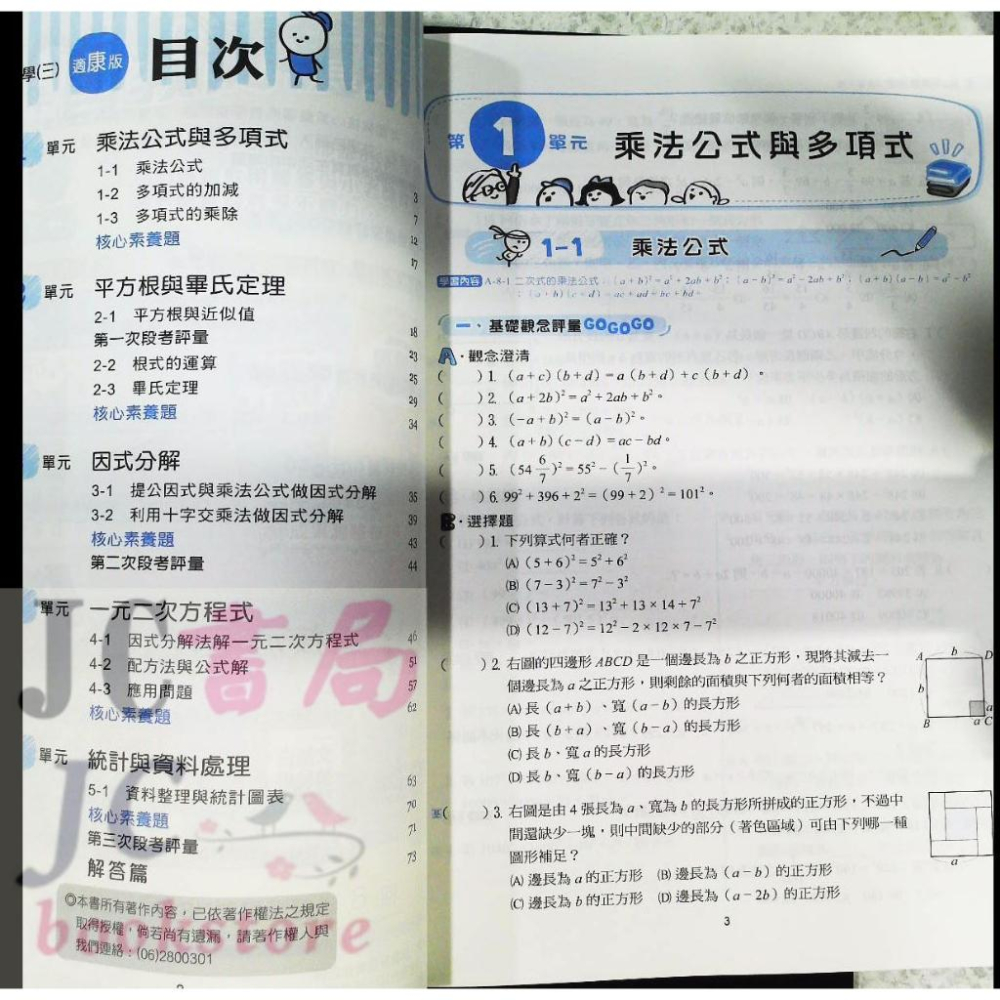 學(三) 適康版 目次
單元 乘法公式與多項式
1-1 乘法公式
1-2 多項式的加減 3
1-3 多項式的乘除 7
核心素養題 12
17
單元 平方根與畢氏定理
2-1 平方根與近似值
第一次段考評量 18
2-2 根式的運算 23
2-3 畢氏定理 25
核心素養題 29
34
單元 因式分解
3-1 提公因式與乘法公式做因式分解 35
3-2 利用十字交乘法做因式分解 39
核心素養題 43
第二次段考評量 44
單元 一元二次方程式
4-1 因式分解法解一元二次方程式 46
4-2 配方法與公式解 51
4-3 應用問題 57
核心素養題 62
單元 統計與資料處理
5-1 資料整理與統計圖表 63
核心素養題 70
第三次段考評量 71
解答篇 73
◎本書所有著作內容,已依著作權法之規定
取得授權,倘若尚有遺漏,請著作權人與
我們連絡:(06)2800301
JC書局
JC
bookstore
第1單元 乘法公式與多項式
1-1 乘法公式
學習內容 A-8-1 二次式的乘法公式:(a+b)²=a²+2ab+b²;(a-b)²=a²-2ab+b²;(a+b)(a-b)=a²-b²
;(a+b)(c+d)=ac+ad+bc+bd。
一、基礎觀念評量 GOGOGO
A.觀念澄清
( )1. (a+c)(b+d)=a(b+d)+c(b+d)。
( )2. (a+2b)²=a²+2ab+b²。
( )3. (-a+b)²=(a-b)²。
( )4. (a+b)(c-d)=ac-bd。
( )5. (54 6/7)²=55²-(1/7)²。
( )6. 99²+396+2²=(99+2)²=101²。
B.選擇題
( )1. 下列算式何者正確?
(A) (5+6)²=5²+6²
(B) (7-3)²=7²-3²
(C) (13+7)²=13²+13×14+7²
(D) (12-7)²=12²-2×12×7-7²
( )2. 右圖的四邊形ABCD是一個邊長為b之正方形,現將其減去一
個邊長為a之正方形,則剩餘的面積與下列何者的面積相等?
(A) 長(a+b)、寬(a-b)的長方形
(B) 長(b+a)、寬(b-a)的長方形
(C) 長b、寬a的長方形
(D) 長b、寬(b-a)的長方形
A b D
b
a
B a C
( )3. 右圖是由4張長為a、寬為b的長方形所拼成的正方形,不過中
間還缺少一塊,則中間缺少的部分(著色區域)可由下列哪一種
圖形補足?
(A) 邊長為a的正方形 (B) 邊長為(a-b)的正方形
(C) 邊長為b的正方形 (D) 邊長為(a-2b)的正方形
a
3